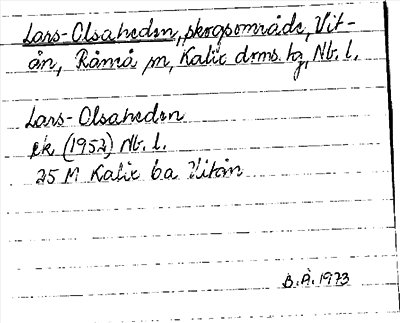 Lars-Olsaheden, skogsområde, Vit-
ån, Råneå sn, Kalix doms. tg, Nb. l.
Lars-Olsaheden
ek (1952) Nb. l.
25 M Kalix 6a Vitån
B.Å. 1973